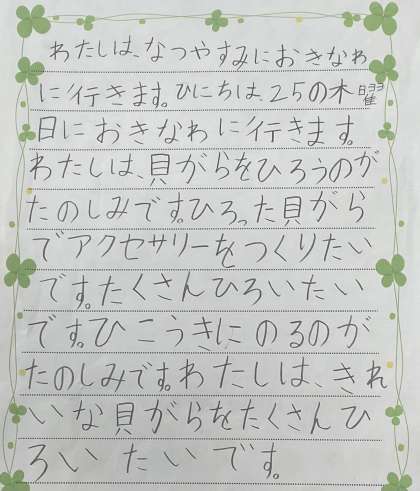 わたしは、なつやすみにおきなわ
に行きます。ひにちは、25の木曜
日におきなわに行きます。
わたしは、貝がらをひろうのが
たのしみです。ひろった貝がら
でアクセサリーをつくりたい
です。たくさんひろいたい
です。ひこうきにのるのが
たのしみです。わたしは、きれ
いな貝がらをたくさんひ
ろいたいです。